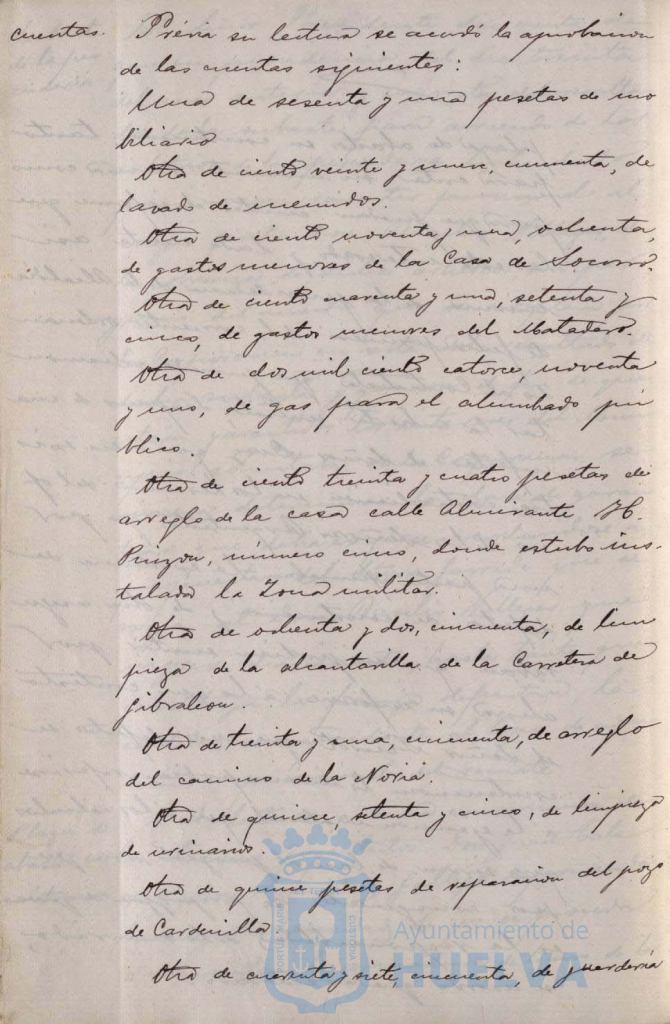 cuentas. Prévia su lectura se acordó la aprobacion
de las cuentas siguientes:
Una de sesenta y una pesetas de mo
biliario
Otra de ciento veinte y nueve, cincuenta, de
lavado de menudos.
Otra de ciento noventa y una, ochenta,
de gastos menores de la Casa de Socorro.
Otra de ciento cuarenta y una, setenta y
cinco, de gastos menores del Matadero.
Otra de dos mil ciento catorce, noventa
y uno, de gas para el alumbrado pú
blico.
Otra de ciento treinta y cuatro pesetas de
arreglo de la casa calle Almirante H.
Pinzon, número cinco, donde estubo ins-
talada la Zona militar.
Otra de ochenta y dos, cincuenta, de lim
pieza de la alcantarilla de la Carretera de
Gibraleon.
Otra de treinta y una, cincuenta, de arreglo
del camino de la Noria.
Otra de quince, setenta y cinco, de limpieza
de urinarios.
Otra de quince pesetas de reparacion del pozo
de Cardenilla.
Otra de cuarenta y siete, cincuenta, de guarderia
Ayuntamiento de
HUELVA